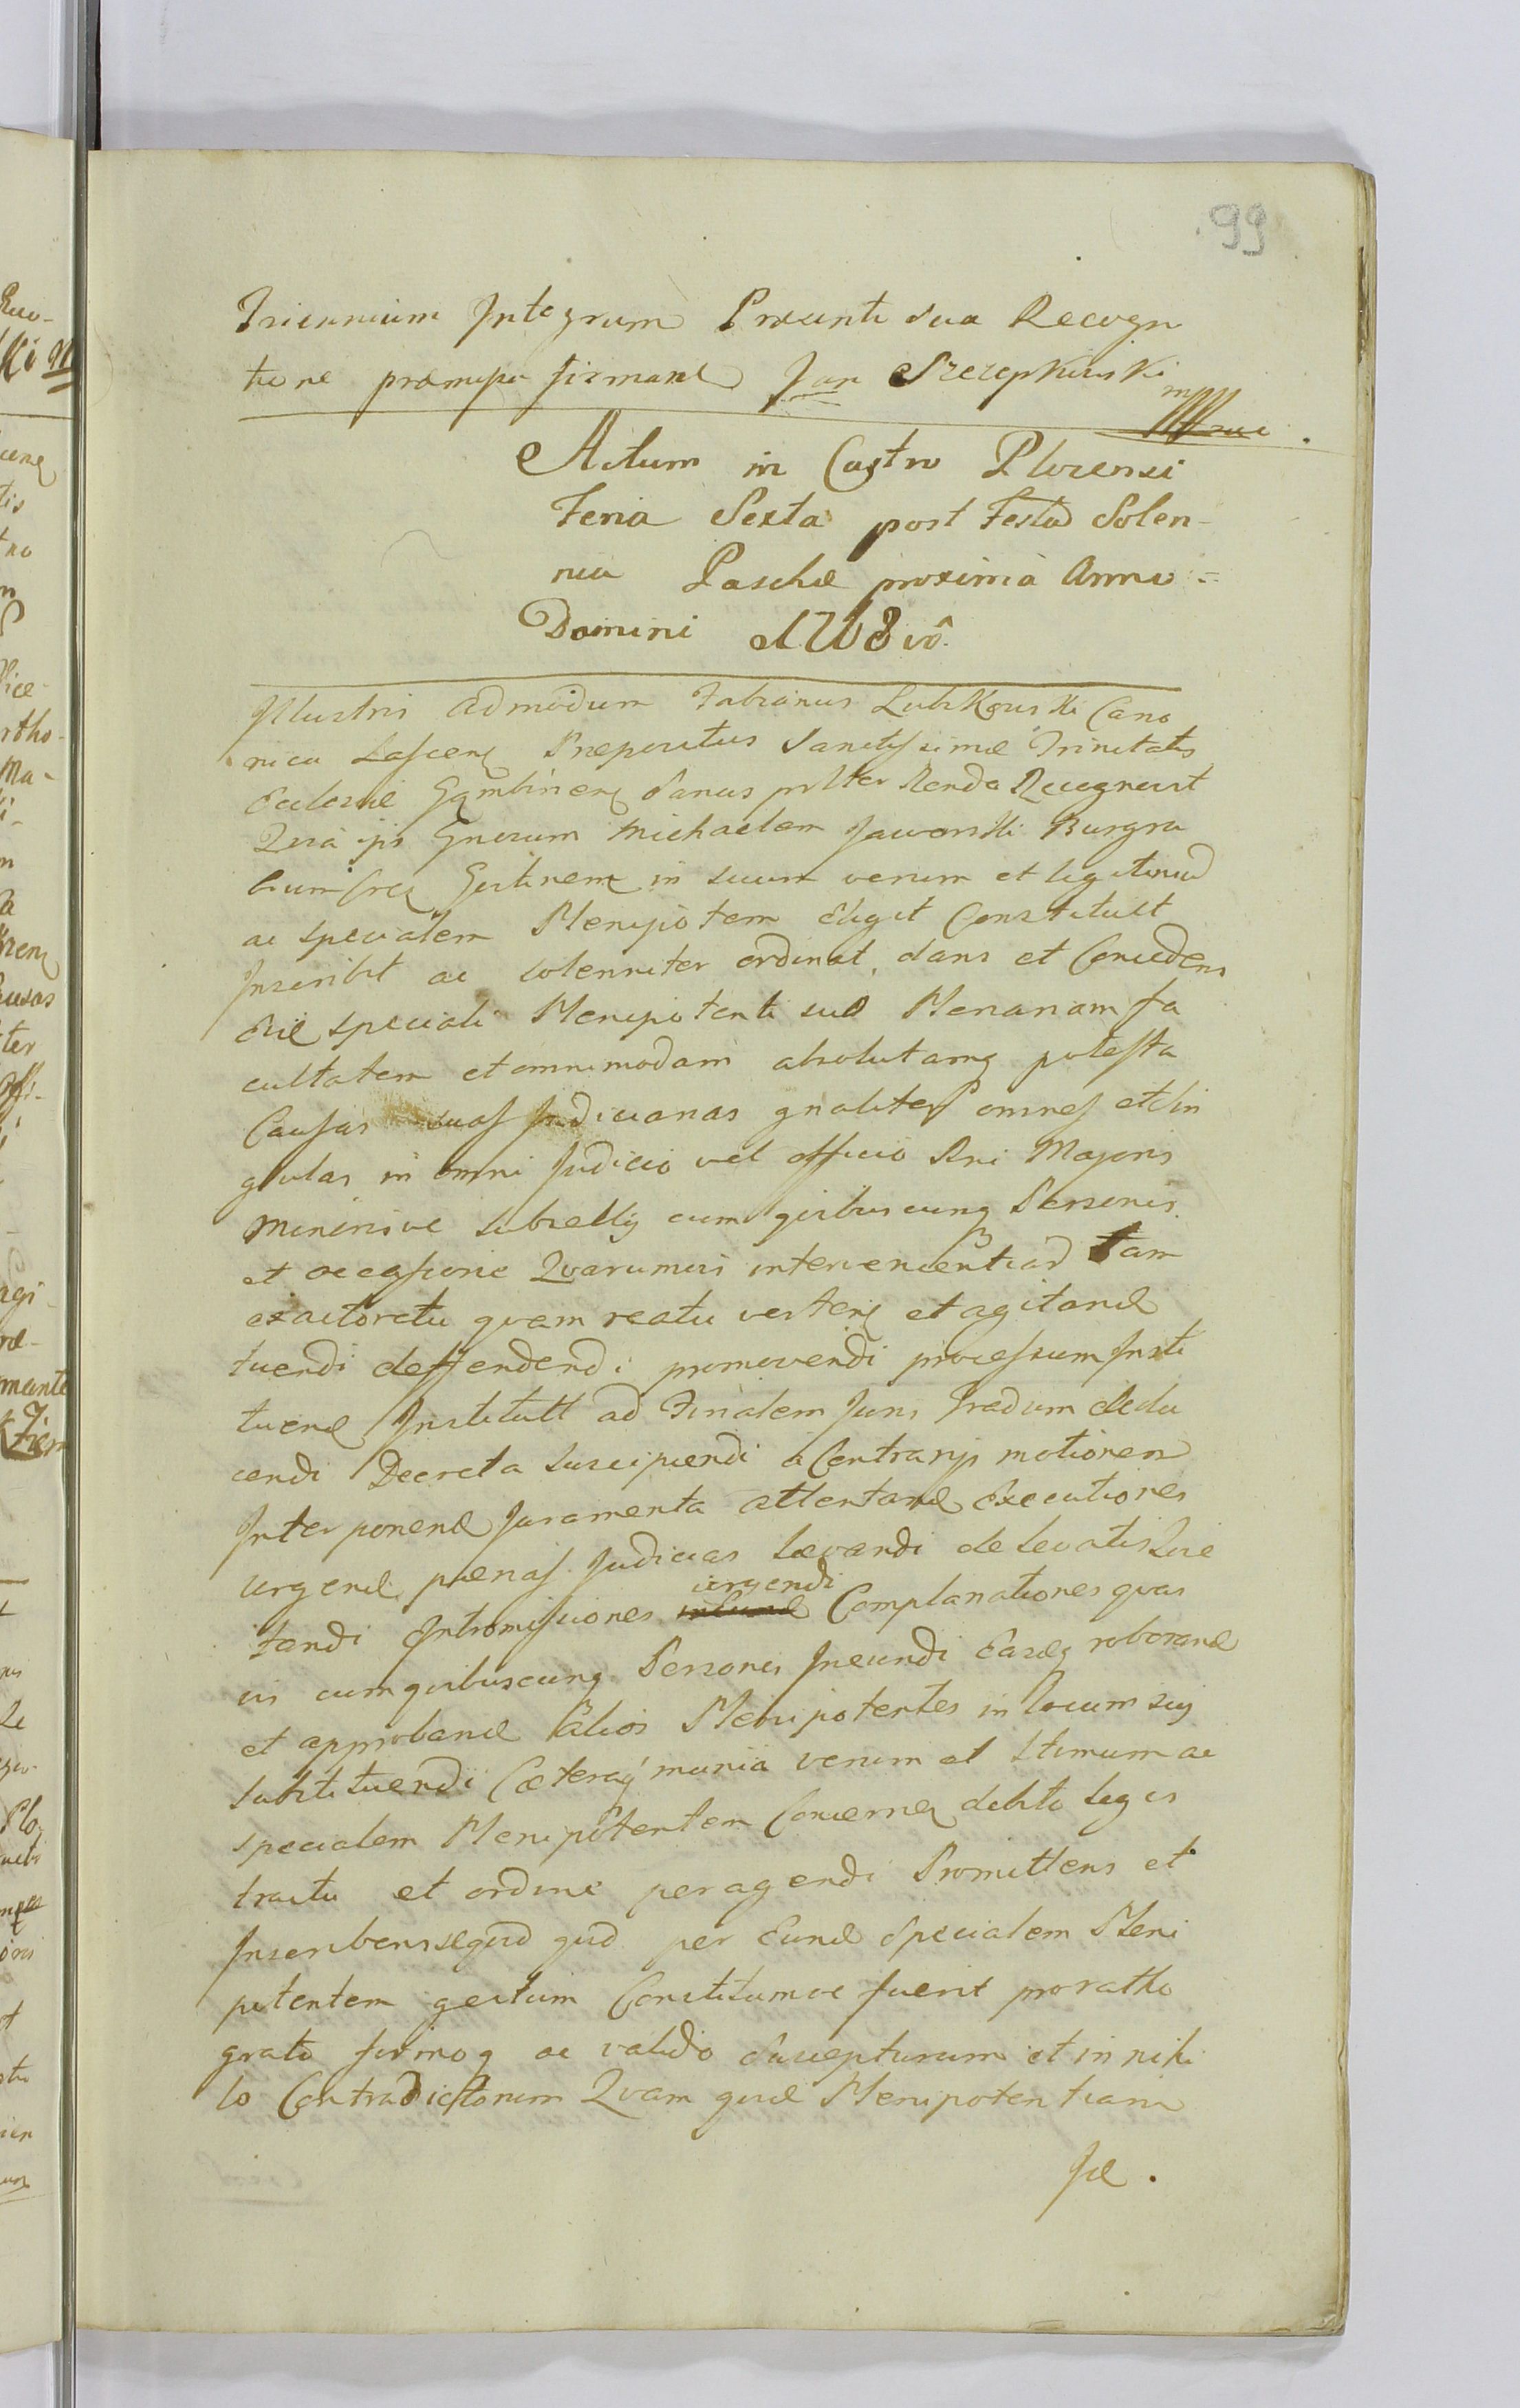 99
Triennium Integrum Præsenti sua Recogni
tione præmissa firmand Jan Szczepkowski
mpp
Actum in Castro Plocensi
Feria Sexta post Festa Solen-
nia Paschæ proxima Anno =
Domini 1768vô.
Illustris Admodum Fabianus Lubkowski Cano
nicus Lascens Præpositus Sanctissimæ Trinitatis
Ecclesiæ Gąmbinens Sanus pltter Renda Recognovit
Quia ips Gnrosum Michaelem Jaworski Burgra
bium Gostinens in suum verum et legitimum
ac specialem Plenipotem Elegit Constituit
Inscribit ac solenniter ordinat, dans et Concedens
Eid speciali Plenipotenti suo Plenariam fa
cultatem et omnimodam absolutamq potesta
Causas suas Judiciarias gnaliter omnes et sin
gulas in omni Judicio vel officio Rni Majoris
Minorisve subselly cum qvibuscunq Personis
et occasione Qvarumvis intervenientiad tam
ex actoratu qvam reatu vertens et agitand
tuendi deffendendi promovendi processum Insti
tuend Institutt ad Finalem Juris Gradum dedu
cendi Decreta suscipiendi à Contrariis motionem
Interponend Juramenta attentand Executiones
urgend pœnas Judicias Levandi de levatis Qvie
tandi Intromissiones urgendi Complanationes qvas
vis cum qvibuscunq Personis Ineundi Easq roborand
et approband alios Plenipotentes in locum sui
substituendi Cæteraq munia verum et Ltimum ac
specialem Plenipotentem Concernen debito Legis
tractu et ordine peragendi Promittens et
Inscribens seqvid qvid per Eund Specialem Pleni
potentem gestum Constitumve fuerit pro ratto
grato firmoq ac valido suscepturum et in nihi
lo Contradicturum Qvam qvid Plenipotentiam
Id.